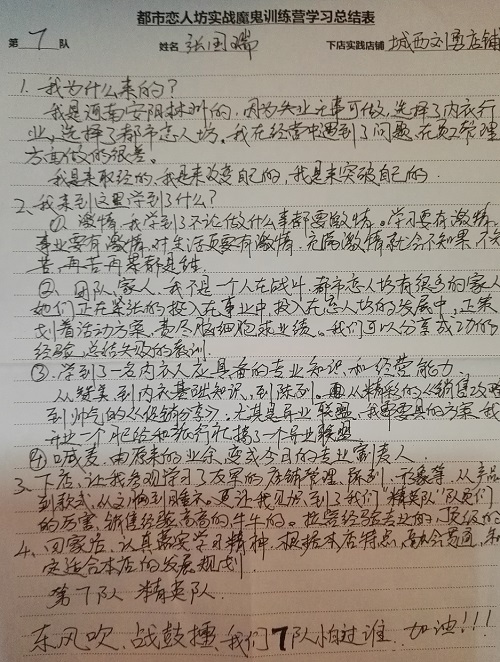 都市恋人坊实战魔鬼训练营学习总结表
第 7 队 姓名 张国瑞 下店实践店铺 城西刘勇店铺
1. 我为什么来的？
我是河南安阳林州的，因为失业无事可做，选择了内衣行
业，选择了都市恋人坊。我在经营中遇到了问题，在员工管理
方面做的很差。
我是来取经的，我是来改变自己的，我是来突破自己的。
2、我来到这里学到了什么？
①、激情，我学到了不论做什么事都要激情。学习要有激情，
事业要有激情，对生活更要有激情，充满激情就会不知累，不知
苦，再苦再累都是
②、团队，家人，我不是一个人在战斗，都市恋人坊有很多的家人，
她们正在紧张的投入在事业中，投入在恋人坊的发展中，正策
划着活动方案，费尽脑细胞求业绩。我们可以分享成功的
经验，总结失败的教训。
③、学到了一名内衣人应具备的专业知识，和经营能力。
从赞美到内衣基础知识，到陈列。再从精彩的《销售攻略》
到帅气的《促销分享》，尤其是异业联盟，我需要具的方案，我
开业一个月给和旅行社搞了一个异业联盟
④、喊麦，由原来的业余，变成今日的专业
3、下店，让我参观学习了友军的店铺管理，陈列，形象等，从产品
到款式，从文胸到睡衣。更让我见识到了我们“精英队”队员们
的厉害，销售经验高高的牛牛的。拉客经验专业的，顶级的
4、回家后，认真落实学习精神，根据本店特点，
定适合本店的发展规划。
第7队 精英队
东风吹，战鼓擂，我们7队怕过谁 加油！！！